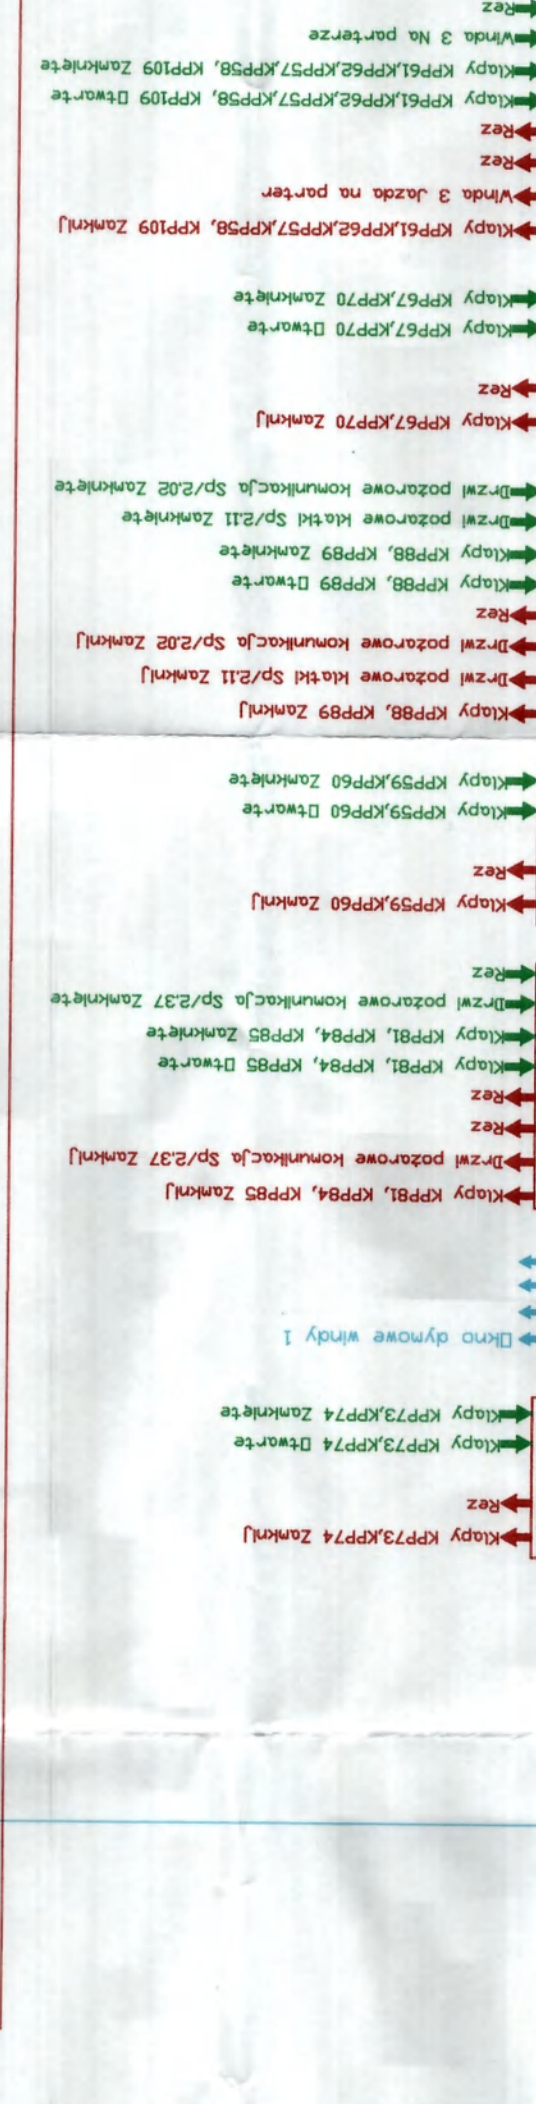 Klapy KPP73,KPP74 Zamknij
Rez
Klapy KPP73,KPP74 Otwarte
Klapy KPP73,KPP74 Zamknięte
Okno dymowe windy 1
Klapy KPP81, KPP84, KPP85 Zamknij
Drzwi pożarowe komunikacja Sp/2.37 Zamknij
Rez
Rez
Klapy KPP81, KPP84, KPP85 Otwarte
Klapy KPP81, KPP84, KPP85 Zamknięte
Drzwi pożarowe komunikacja Sp/2.37 Zamknięte
Rez
Klapy KPP59,KPP60 Zamknij
Rez
Klapy KPP59,KPP60 Otwarte
Klapy KPP59,KPP60 Zamknięte
Klapy KPP88, KPP89 Zamknij
Drzwi pożarowe klatki Sp/2.11 Zamknij
Drzwi pożarowe komunikacja Sp/2.02 Zamknij
Rez
Klapy KPP88, KPP89 Otwarte
Klapy KPP88, KPP89 Zamknięte
Drzwi pożarowe klatki Sp/2.11 Zamknięte
Drzwi pożarowe komunikacja Sp/2.02 Zamknięte
Klapy KPP67,KPP70 Zamknij
Rez
Klapy KPP67,KPP70 Otwarte
Klapy KPP67,KPP70 Zamknięte
Klapy KPP61,KPP62,KPP57,KPP58, KPP109 Zamknij
Winda 3 Jazda na parter
Rez
Rez
Klapy KPP61,KPP62,KPP57,KPP58, KPP109 Otwarte
Klapy KPP61,KPP62,KPP57,KPP58, KPP109 Zamknięte
Winda 3 Na parterze
Rez